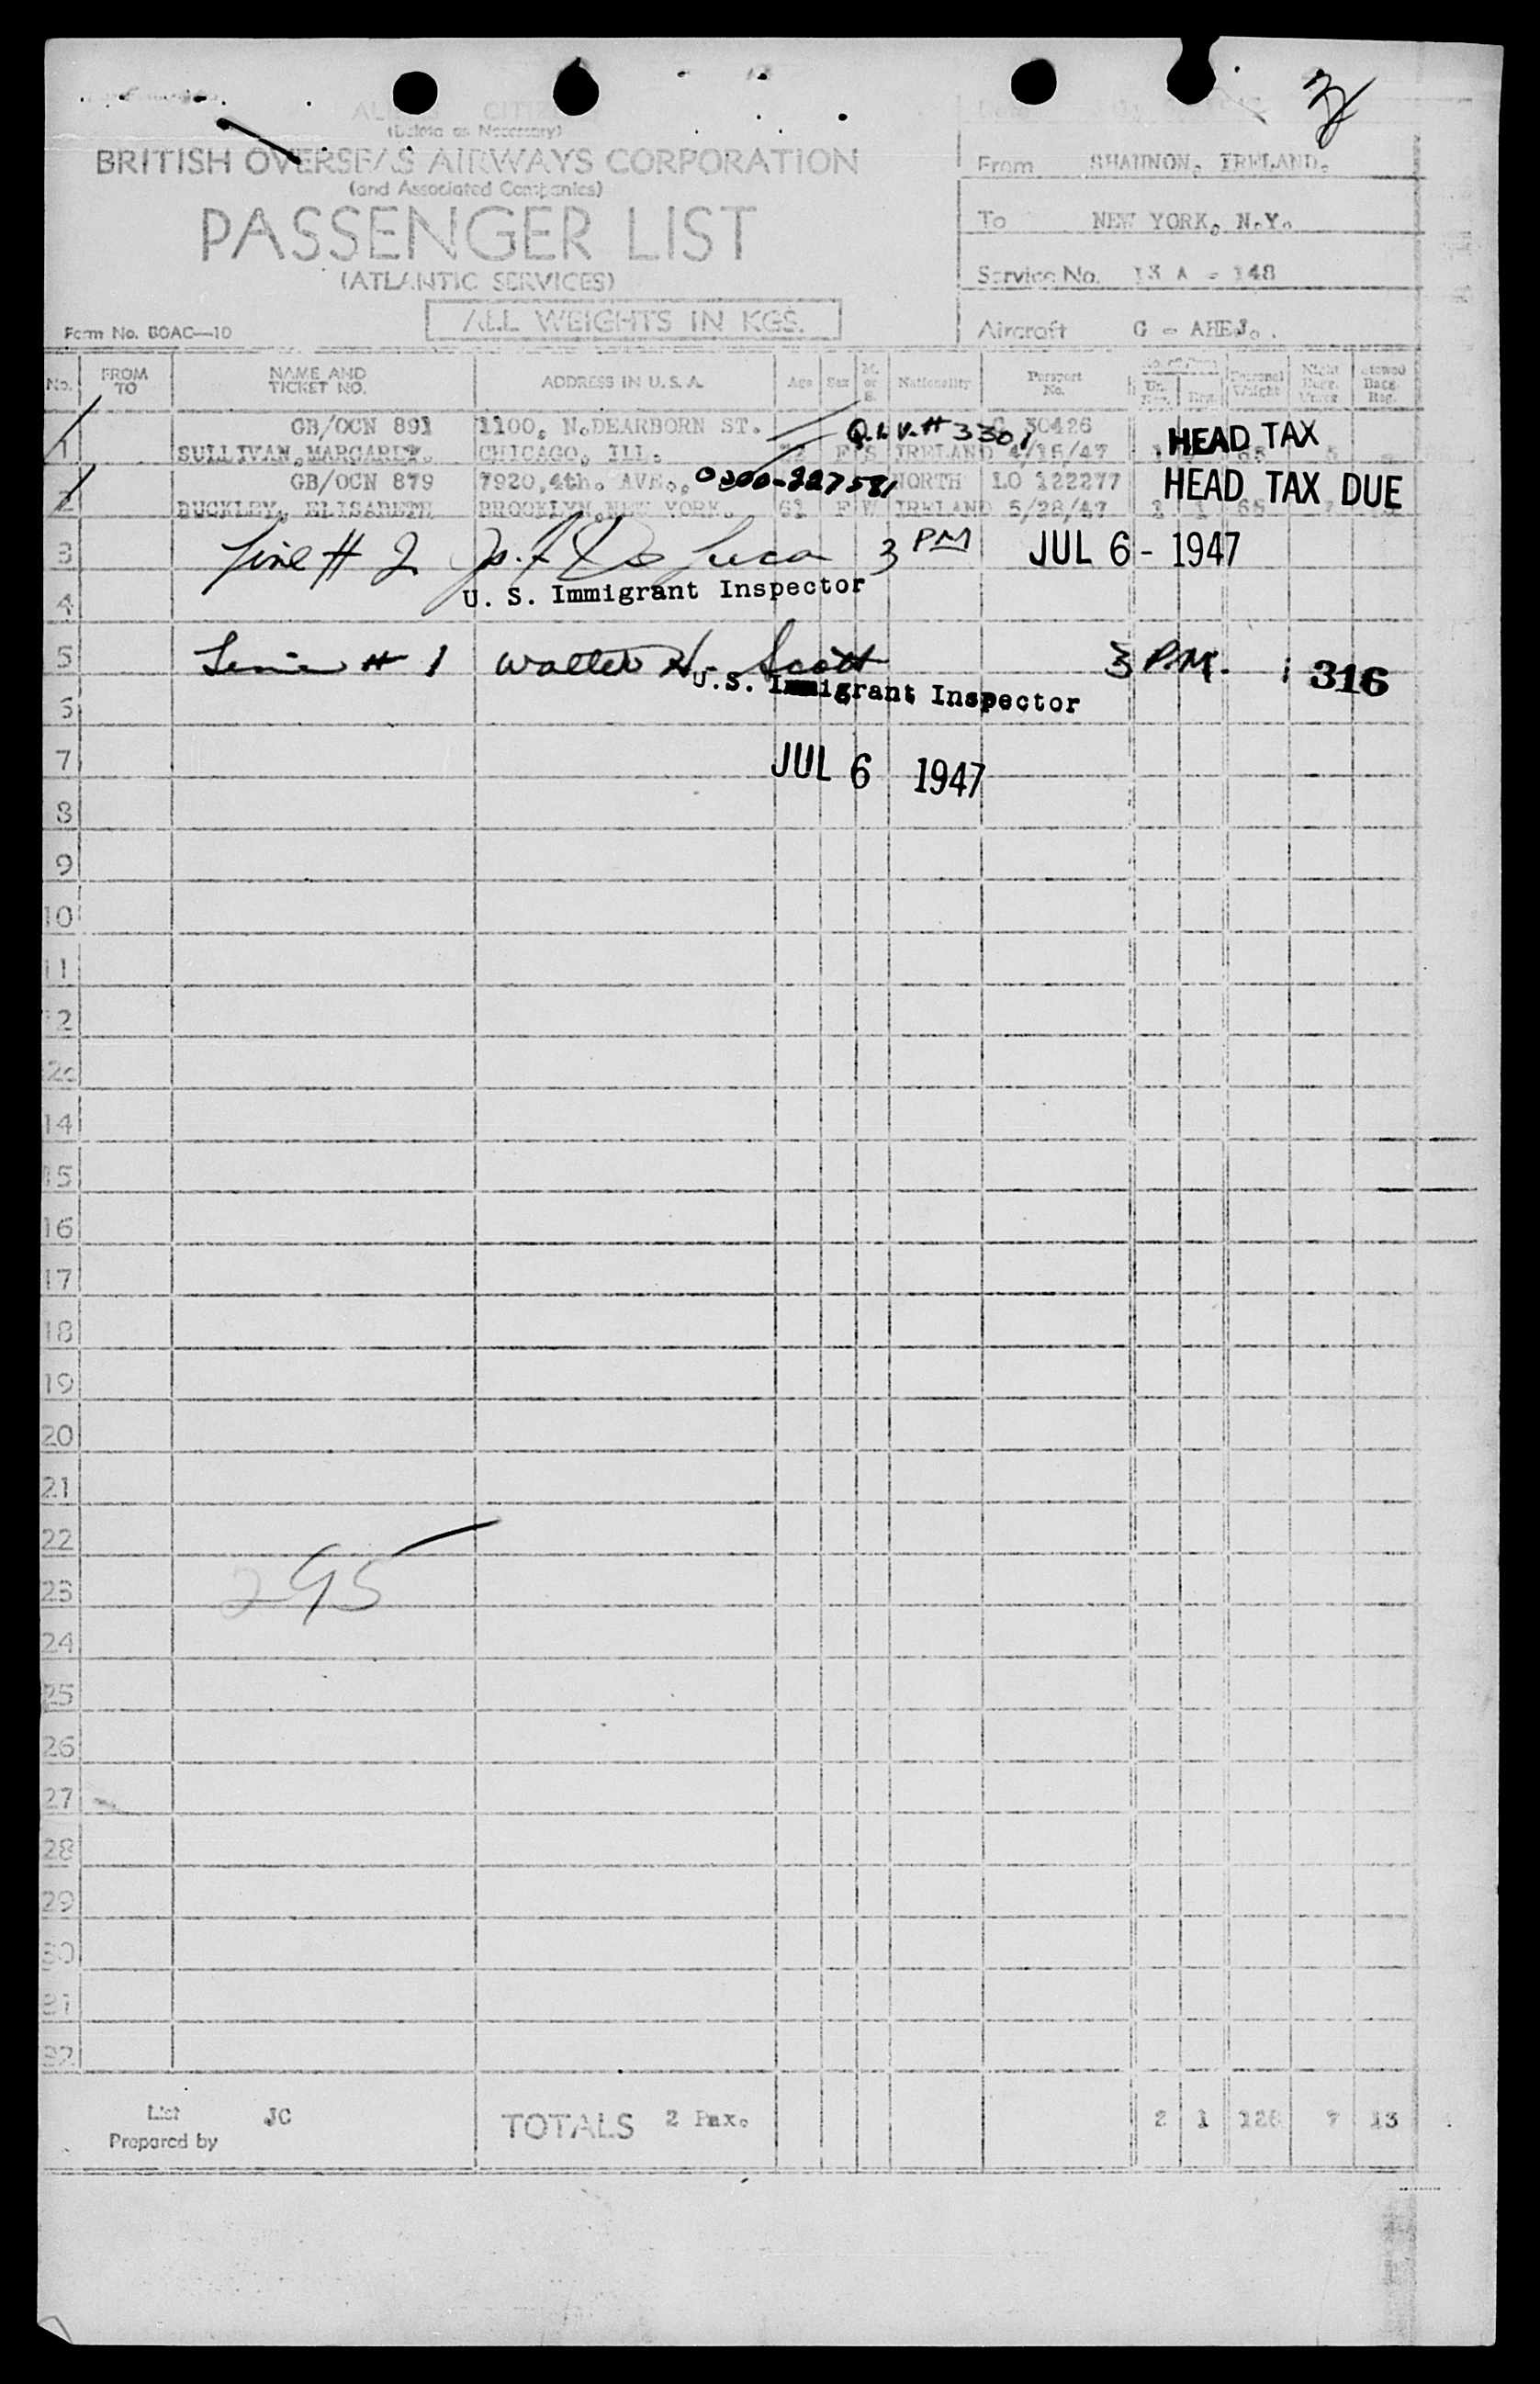 (Delete as Necessary)
BRITISH OVERSEAS AIRWAYS CORPORATION
(and Associated Companies)
PASSENGER LIST
(ATLANTIC SERVICES)
ALL WEIGHTS IN KGS.
Form No. BOAC—10
From SHANNON, IRELAND.
To NEW YORK, N.Y.
Service No. 13 A - 148
Aircraft G - AHEJ.
No. FROM TO NAME AND TICKET NO. ADDRESS IN U.S.A. Age Sex M. or S. Nationality Passport No. Personal Weight
GB/OCN 891 1100, N.DEARBORN ST. Q.I.V.# 3301 30426 HEAD TAX
1 SULLIVAN, MARGARET. CHICAGO, ILL. F S IRELAND 4/15/47
GB/OCN 879 7920, 4th. AVE., 0300-227581 NORTH LO 122277 HEAD TAX DUE
2 BUCKLEY, ELISABETH BROOKLYN, NEW YORK. 61 F W IRELAND 5/28/47 1 1 65
3 Line # 2 De Luca 3 PM JUL 6 - 1947
4 U. S. Immigrant Inspector
5 Line # 1 Walter H. Scott 3 P.M. 316
U.S. Immigrant Inspector
6
7 JUL 6 1947
8
9
10
11
12
14
15
16
17
18
19
20
21
22
23 295
24
25
26
27
28
29
30
31
32
List Prepared by JC TOTALS 2 Pax. 2 1 128 7 13